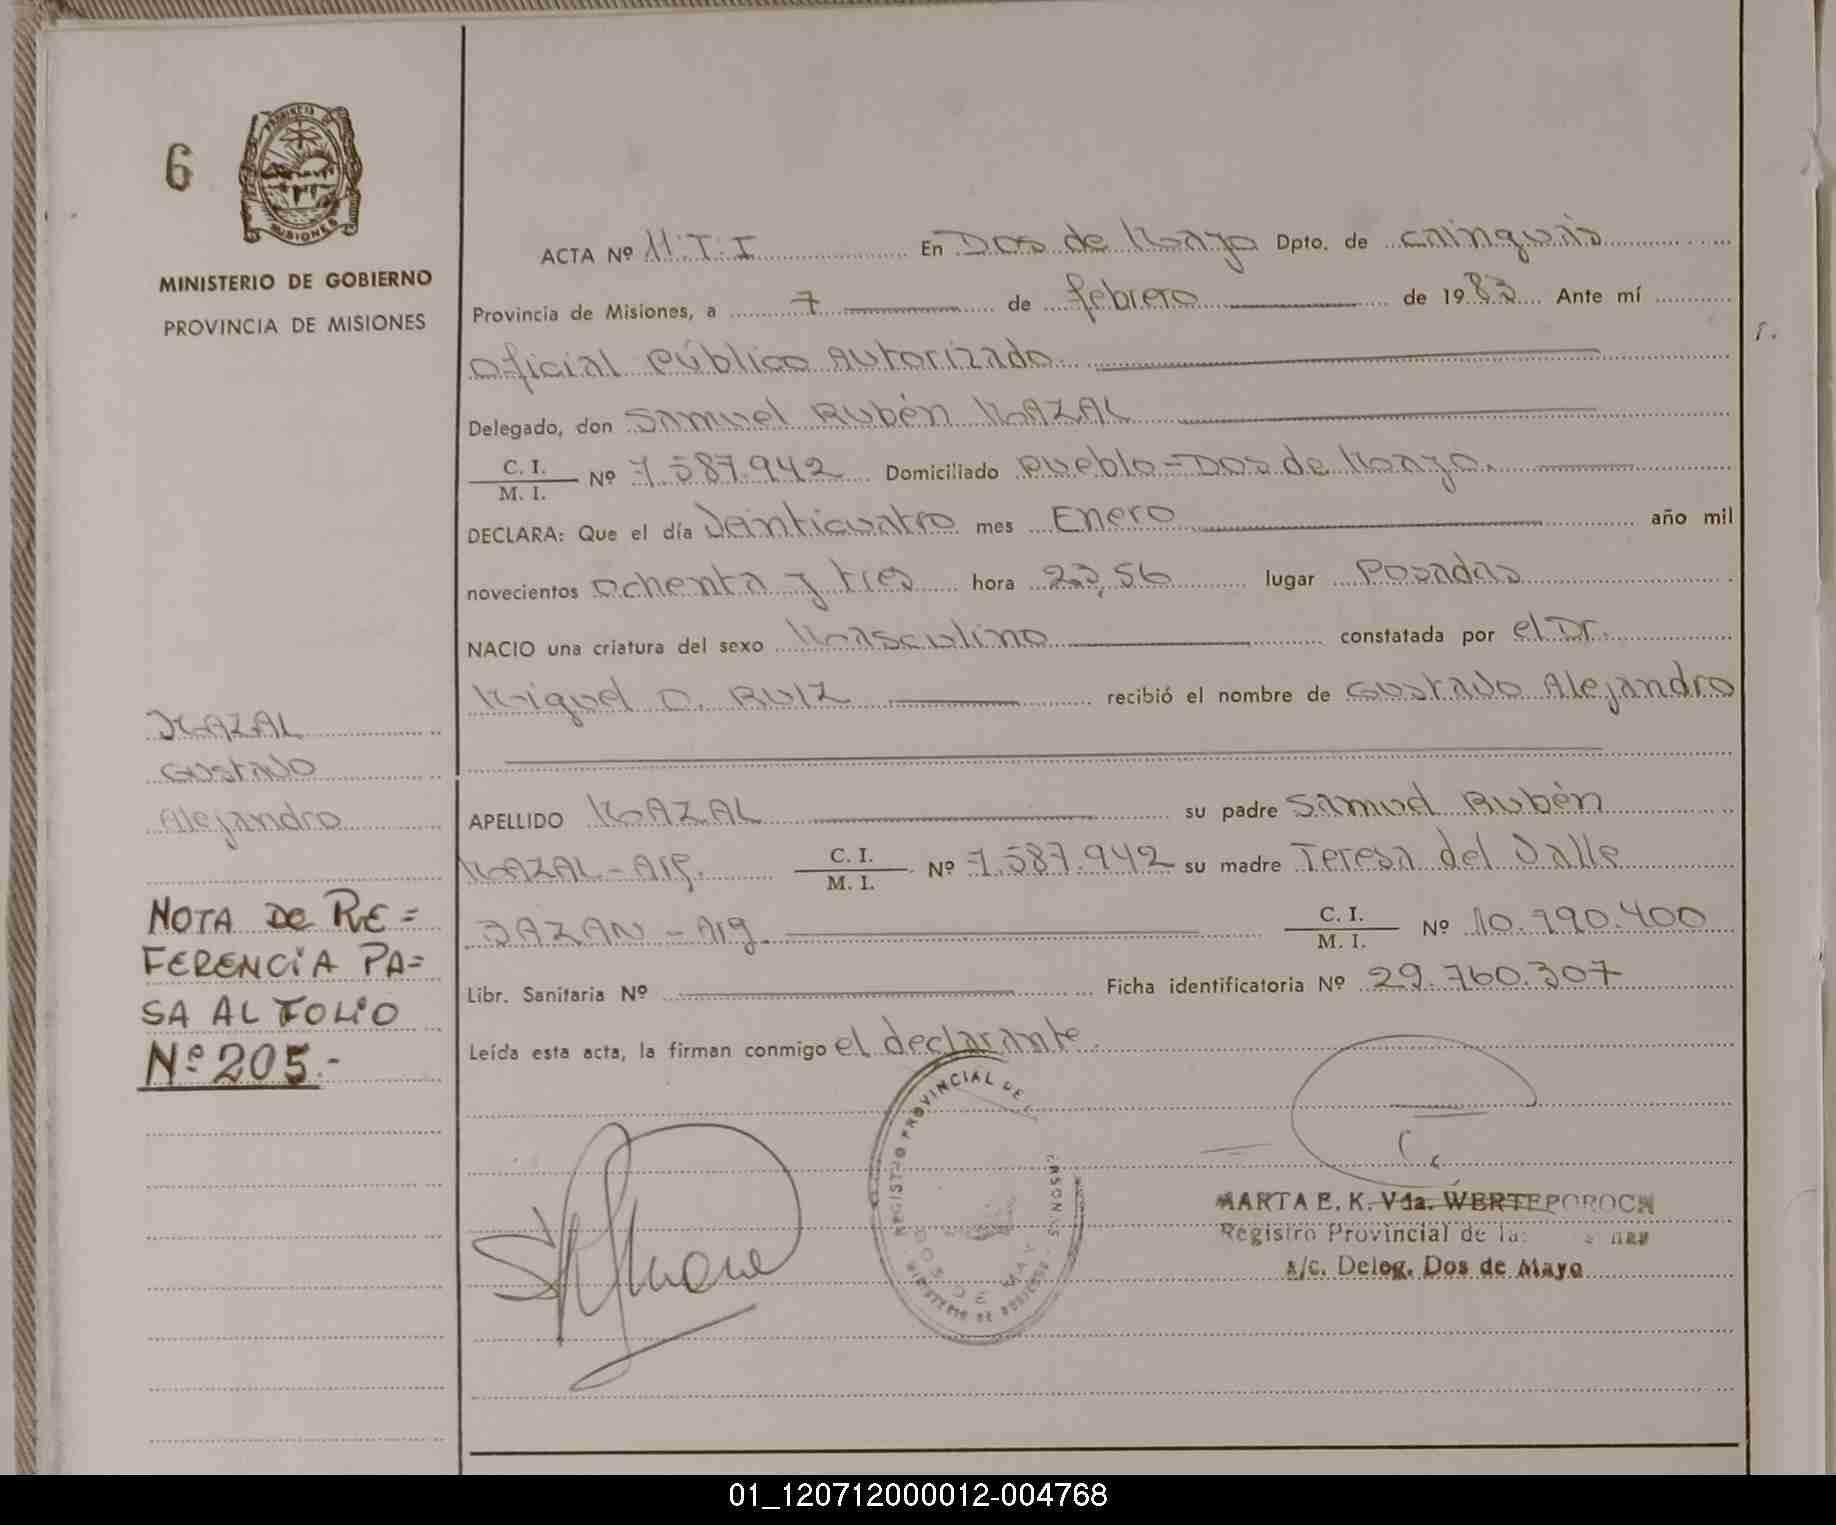 6
PROVINCIA DE
MISIONES
MINISTERIO DE GOBIERNO
PROVINCIA DE MISIONES
ACTA Nº 11.T.I En Dos de Mayo Dpto. de Cainguás
Provincia de Misiones, a 7 de febrero de 1983 Ante mí
Oficial Público Autorizado
Delegado, don Samuel Rubén MAZAL
C. I. / M. I. Nº 7.587.942 Domiciliado Pueblo - Dos de Mayo.
DECLARA: Que el día Veinticuatro mes Enero año mil
novecientos ochenta y tres hora 23,56 lugar Posadas
NACIO una criatura del sexo Masculino constatada por el Dr.
Miguel O. RUIZ recibió el nombre de Gustavo Alejandro
MAZAL
Gustavo
Alejandro
APELLIDO MAZAL su padre Samuel Rubén
MAZAL - Arg. C. I. / M. I. Nº 7.587.942 su madre Teresa del Valle
BAZAN - Arg. C. I. / M. I. Nº 10.190.400
Libr. Sanitaria Nº Ficha identificatoria Nº 29.760.307
Leída esta acta, la firman conmigo el declarante.
NOTA DE RE=
FERENCIA PA=
SA AL FOLIO
Nº 205.-
REGISTRO PROVINCIAL DE PERSONAS
DOS DE MAYO
MINISTERIO DE GOBIERNO
MARTA E. K. Vda. WERTEPOROCH
Registro Provincial de las
a/c. Deleg. Dos de Mayo
01_120712000012-004768